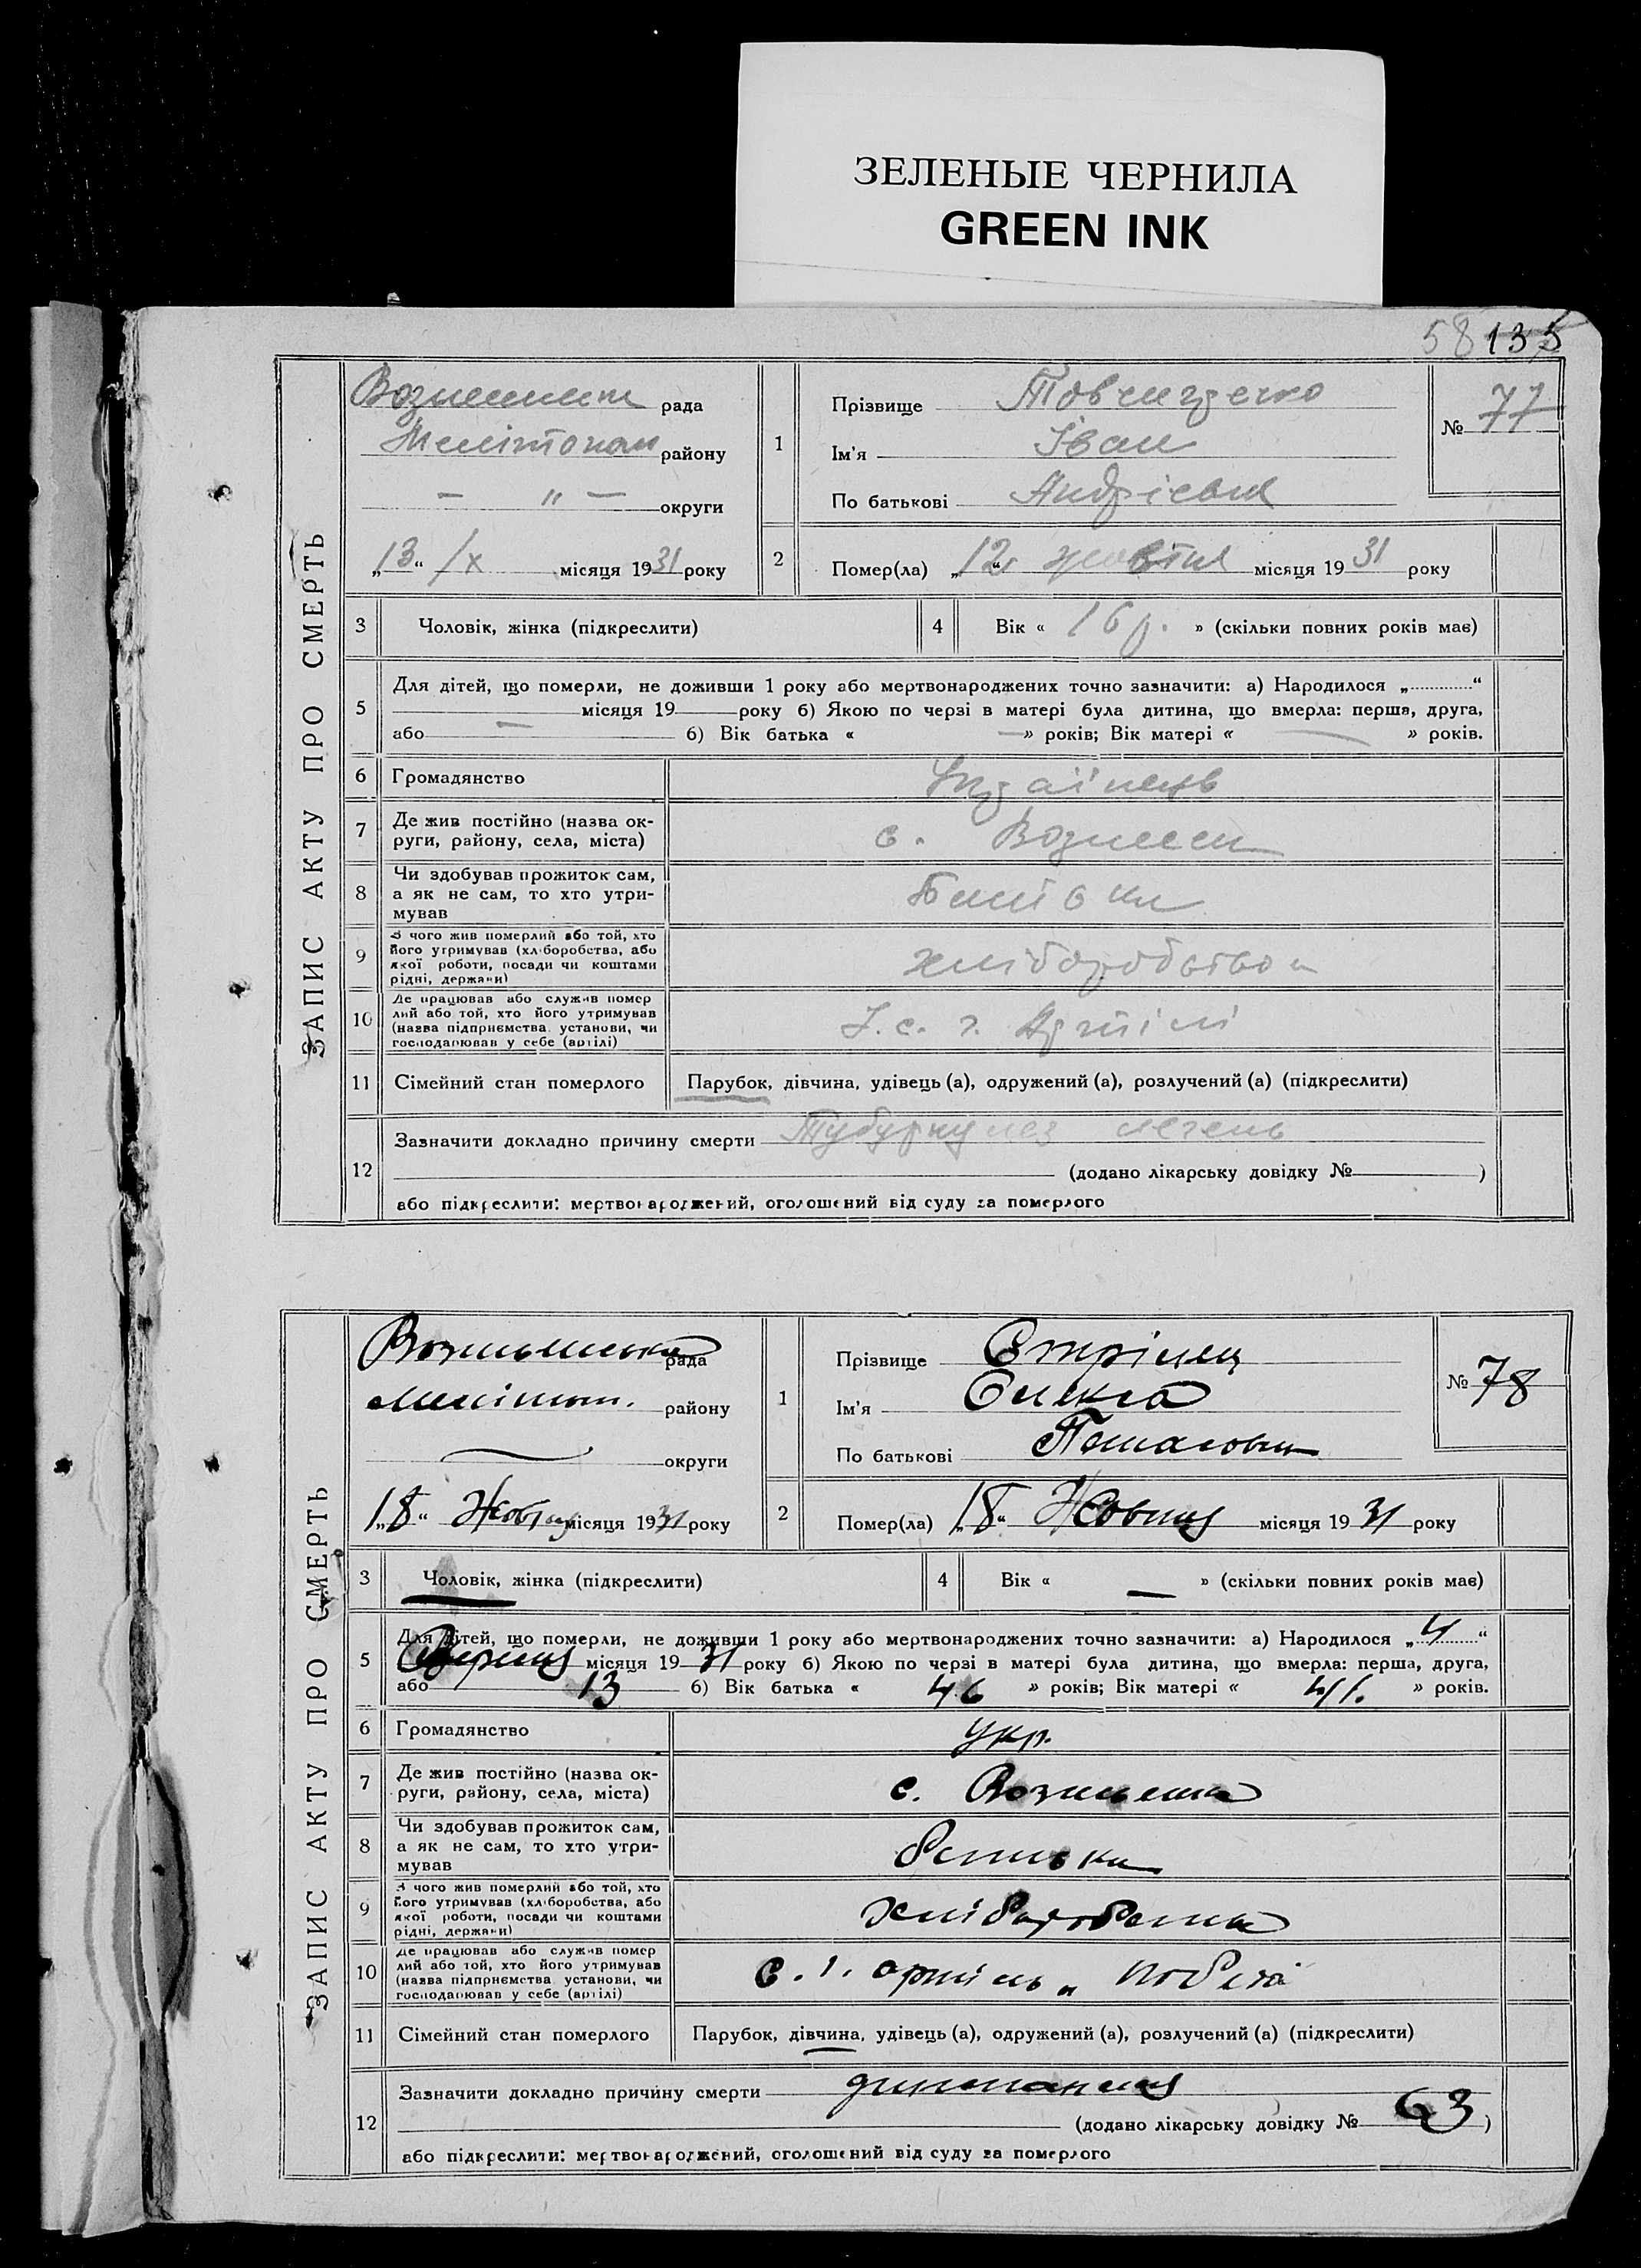 ЗЕЛЕНЫЕ ЧЕРНИЛА
GREEN INK
58 135
ЗАПИС АКТУ ПРО СМЕРТЬ
рада
Мелітопол району
— " — округи
„13“ /X місяця 1931 року
1
Прізвище
Ім'я Іван
По батькові Андрієвич
№ 77
2
Помер(ла) „12“ жовтня місяця 1931 року
3 Чоловік, жінка (підкреслити)
4 Вік « 16 р. » (скільки повних років має)
5 Для дітей, що померли, не доживши 1 року або мертвонароджених точно зазначити: а) Народилося „ “
місяця 19 року б) Якою по черзі в матері була дитина, що вмерла: перша, друга,
або — б) Вік батька « — » років; Вік матері « — » років.
6 Громадянство Українець
7 Де жив постійно (назва ок-
руги, району, села, міста) с. Вознесен
8 Чи здобував прожиток сам,
а як не сам, то хто утри-
мував Батьки
9 З чого жив померлий або той, хто
його утримував (хліборобства, або
якої роботи, посади чи коштами
рідні, держави) хліборобством
10 Де працював або служив помер
лий або той, хто його утримував
(назва підприємства установи, чи
господарював у себе (артілі) Артілі
11 Сімейний стан померлого Парубок, дівчина, удівець (а), одружений (а), розлучений (а) (підкреслити)
12 Зазначити докладно причину смерти Тубуркулез легень
(додано лікарську довідку № )
або підкреслити: мертвонароджений, оголошений від суду за померлого
ЗАПИС АКТУ ПРО СМЕРТЬ
рада
Мелітоп. району
— округи
„18“ Жовтня місяця 1931 року
1
Прізвище Стрілец
Ім'я Олекса
По батькові
№ 78
2
Помер(ла) „18“ Жовтня місяця 1931 року
3 Чоловік, жінка (підкреслити)
4 Вік « — » (скільки повних років має)
5 Для дітей, що померли, не доживши 1 року або мертвонароджених точно зазначити: а) Народилося „4“
місяця 1931 року б) Якою по черзі в матері була дитина, що вмерла: перша, друга,
або 13 б) Вік батька « 46 » років; Вік матері « » років.
6 Громадянство укр.
7 Де жив постійно (назва ок-
руги, району, села, міста) с. Вознесенка
8 Чи здобував прожиток сам,
а як не сам, то хто утри-
мував батьки
9 З чого жив померлий або той, хто
його утримував (хліборобства, або
якої роботи, посади чи коштами
рідні, держави)
10 Де працював або служив помер
лий або той, хто його утримував
(назва підприємства установи, чи
господарював у себе (артілі) с. г. артіль „
11 Сімейний стан померлого Парубок, дівчина, удівець (а), одружений (а), розлучений (а) (підкреслити)
12 Зазначити докладно причину смерти
(додано лікарську довідку № 63 )
або підкреслити: мертвонароджений, оголошений від суду за померлого